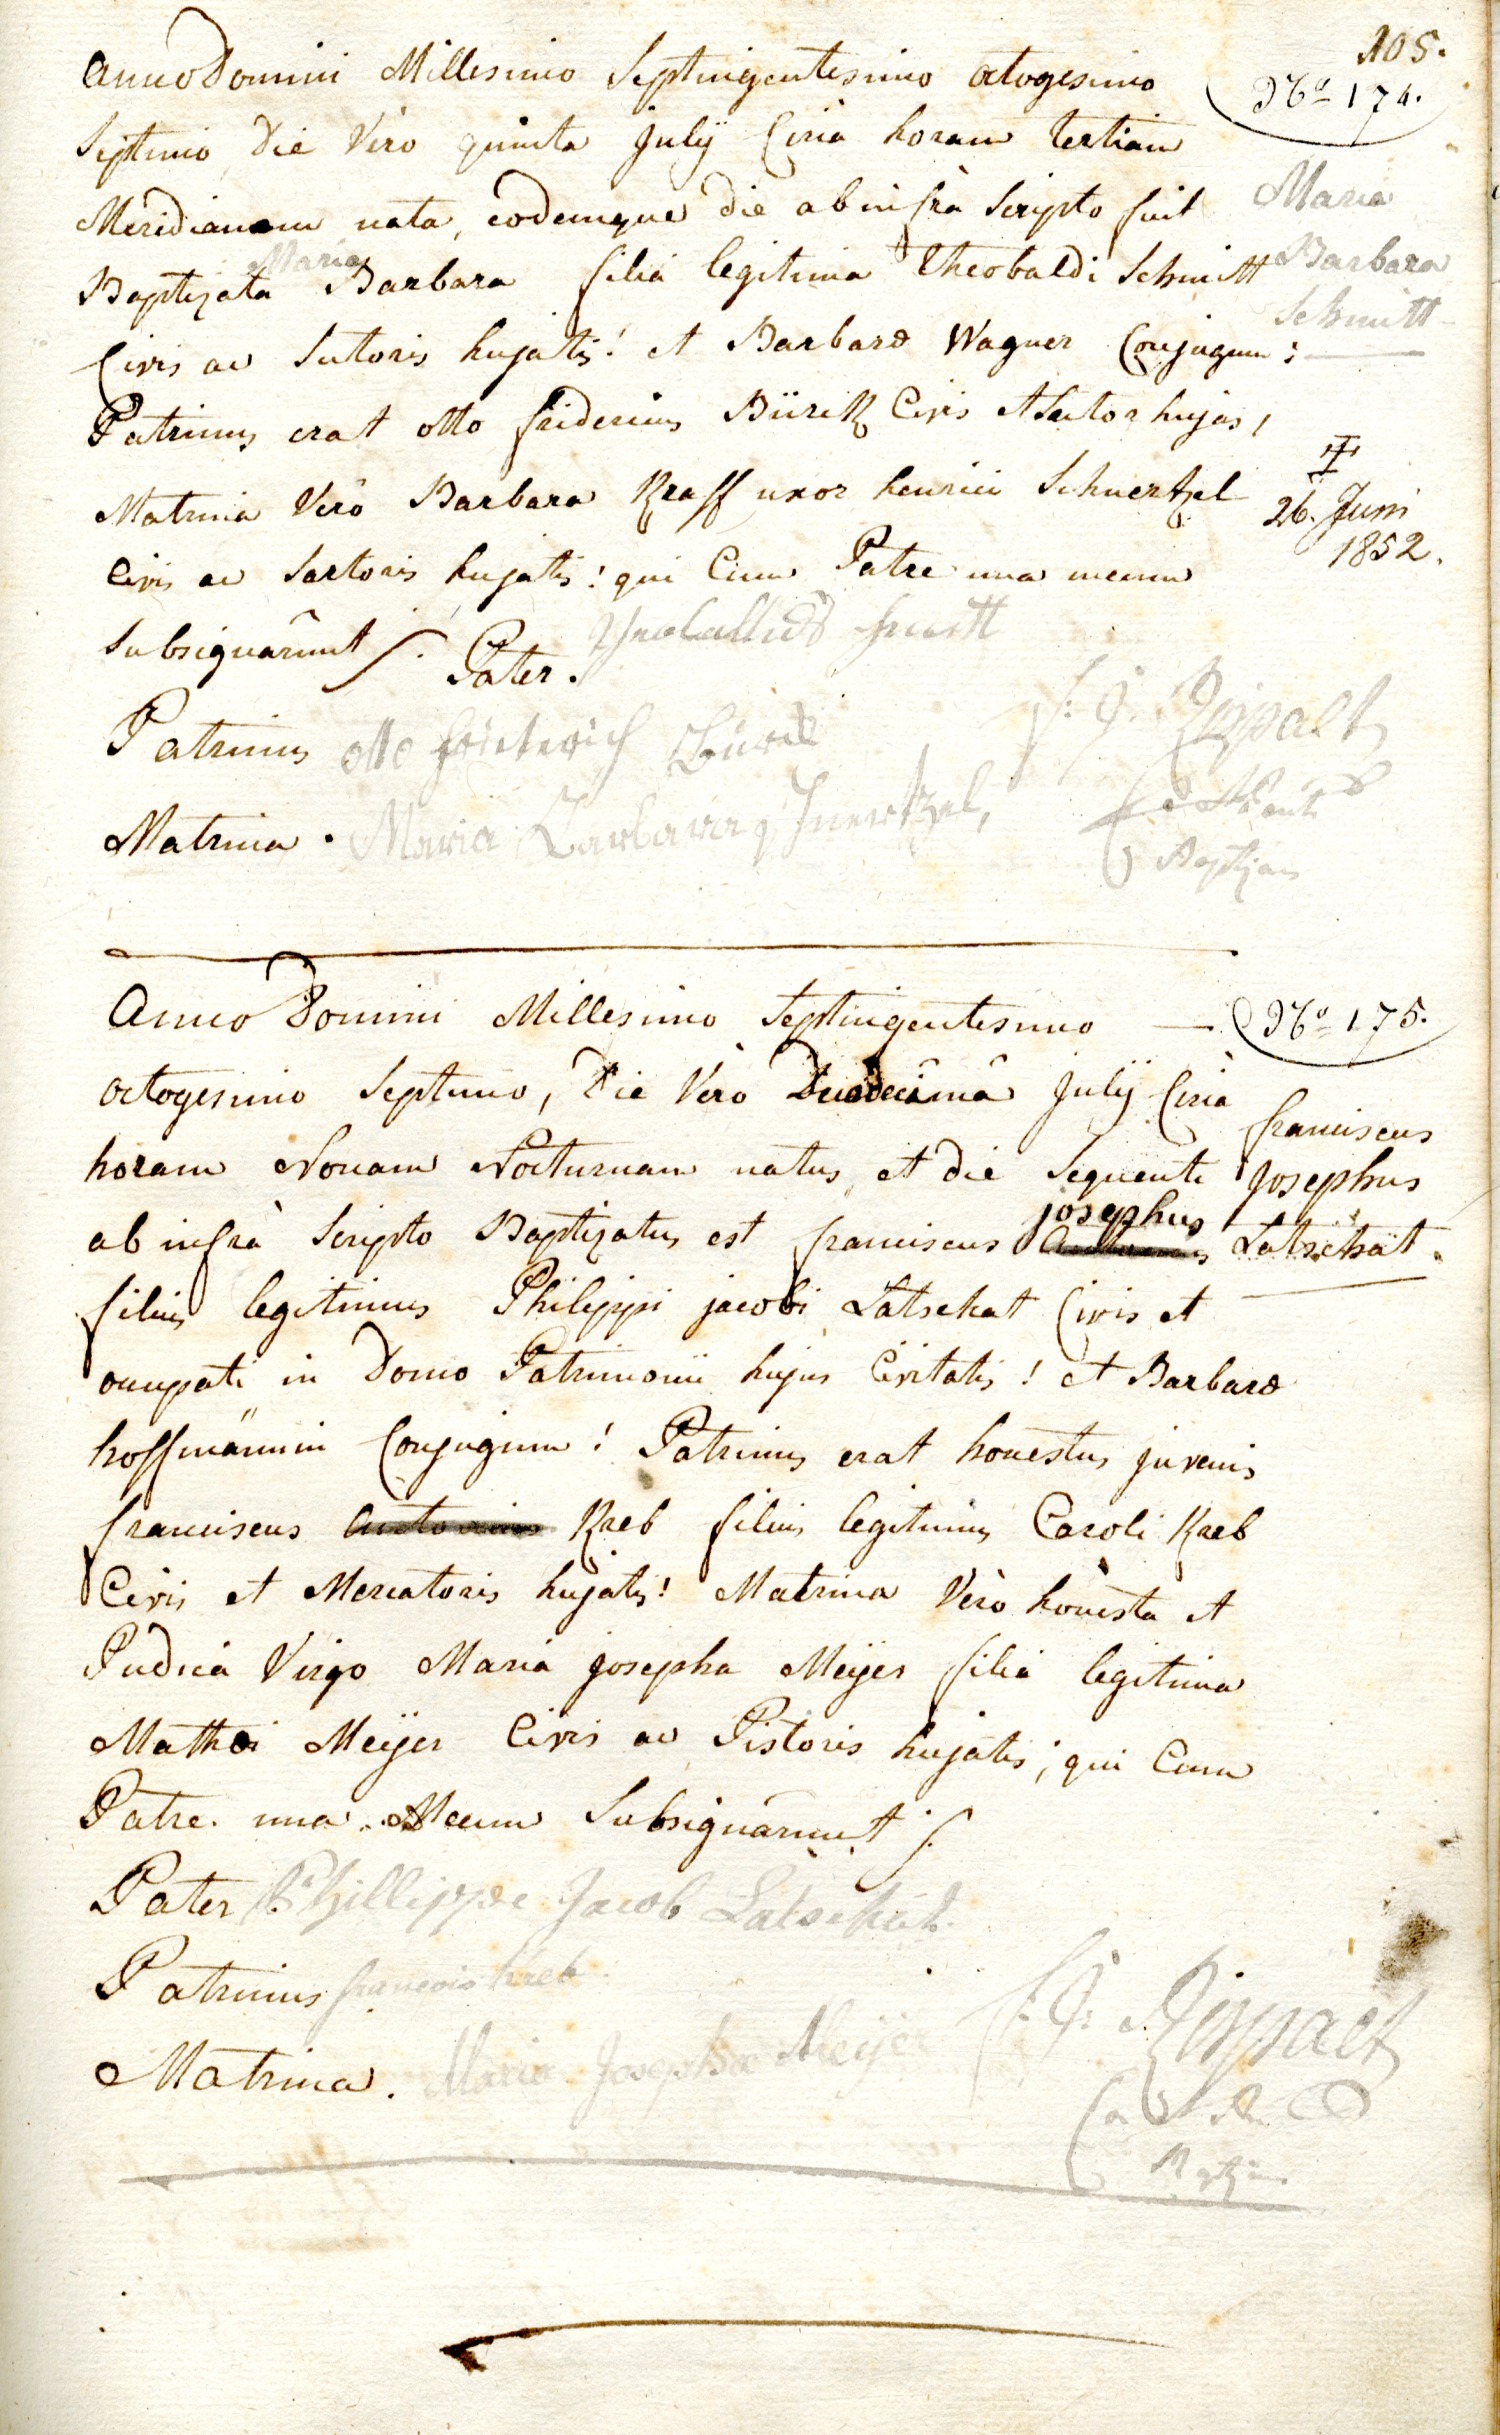 105.
Anno Domini Millesimo Septingentesimo octogesimo
Nº 174.
Septimo, Die Vero quinta Julÿ Circa horam tertiam
Meridianam nata, eodemque die ab infra Scripto fuit
Maria
Baptizata Maria Barbara filia legitima Theobaldi Schmitt
Barbara
Schmitt
Civis ac Sutoris hujatis! et Barbaræ Wagner Conjugum:
Patrinus erat otto fridericus Bürck Civis et Sutor hujas,
Matrina Vero Barbara Kraff uxor henrici Schwertzel
26. Juni
1852.
Civis ac Sartoris hujatis! qui Cum Patre una mecum
Subsignârunt
Pater. Schmitt
Patrinus otto friederich Bürck
F. J. Rippalt
Matrina. Maria Barbara Schwertzel,
Baptizans
Anno Domini Millesimo Septingentesimo —
Nº 175.
octogesimo Septimo, Die Vero Duodecimâ Julÿ Circa
horam Nonam Nocturnam natus, et die Sequenti
franciscus
Josephus
Latschat.
ab infrà Scripto Baptizatus est franciscus josephus
filius legitimus Philippi jacobi Latschat Civis et
occupati in Domo Patrimonii hujus Civitatis! et Barbaræ
hoffmännin Conjugum! Patrinus erat honestus juvenis
franciscus Antonius Kreb filius legitimus Caroli Kreb
Civis et Mercatoris hujatis! Matrina Vero honesta et
Pudica Virgo Maria josepha Meÿer filia legitima
Mathæi Meÿer Civis ac Pistoris hujatis; qui Cum
Patre una Mecum Subsignârunt
Pater Phillippe Jacob Latschat.
Patrinus françois Kreb.
F. J. Rippalt
Matrina. Maria Josepha Meÿer